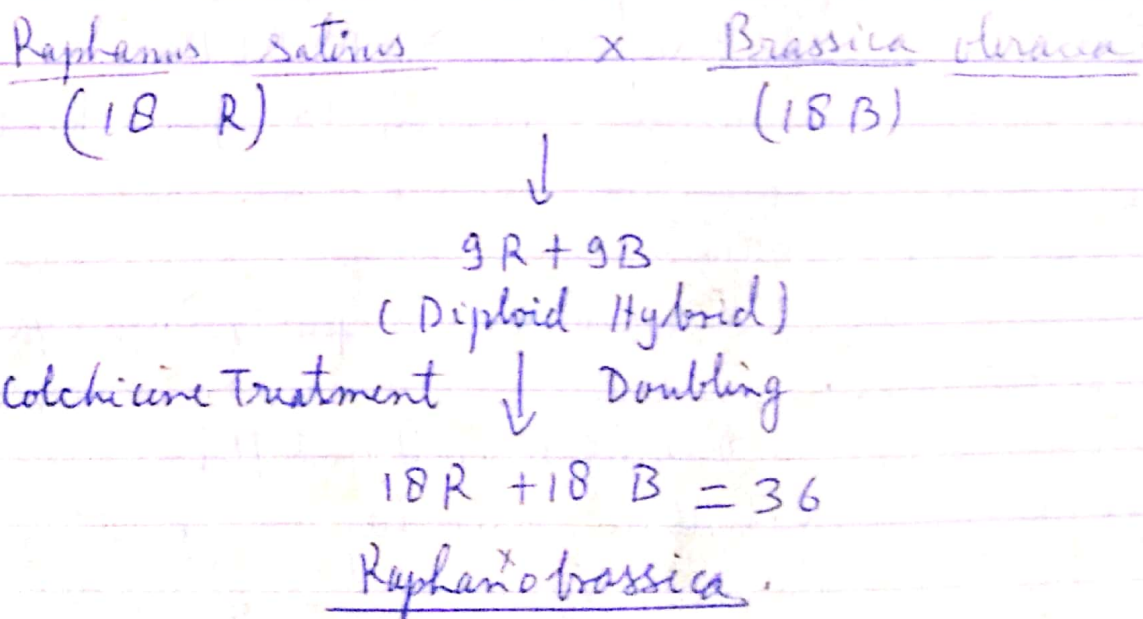 Raphanus sativus x Brassica oleracea
(18 R) (18 B)
↓
9R + 9B
(Diploid Hybrid)
Colchicine Treatment ↓ Doubling
18R + 18 B = 36
Raphanobrassica.